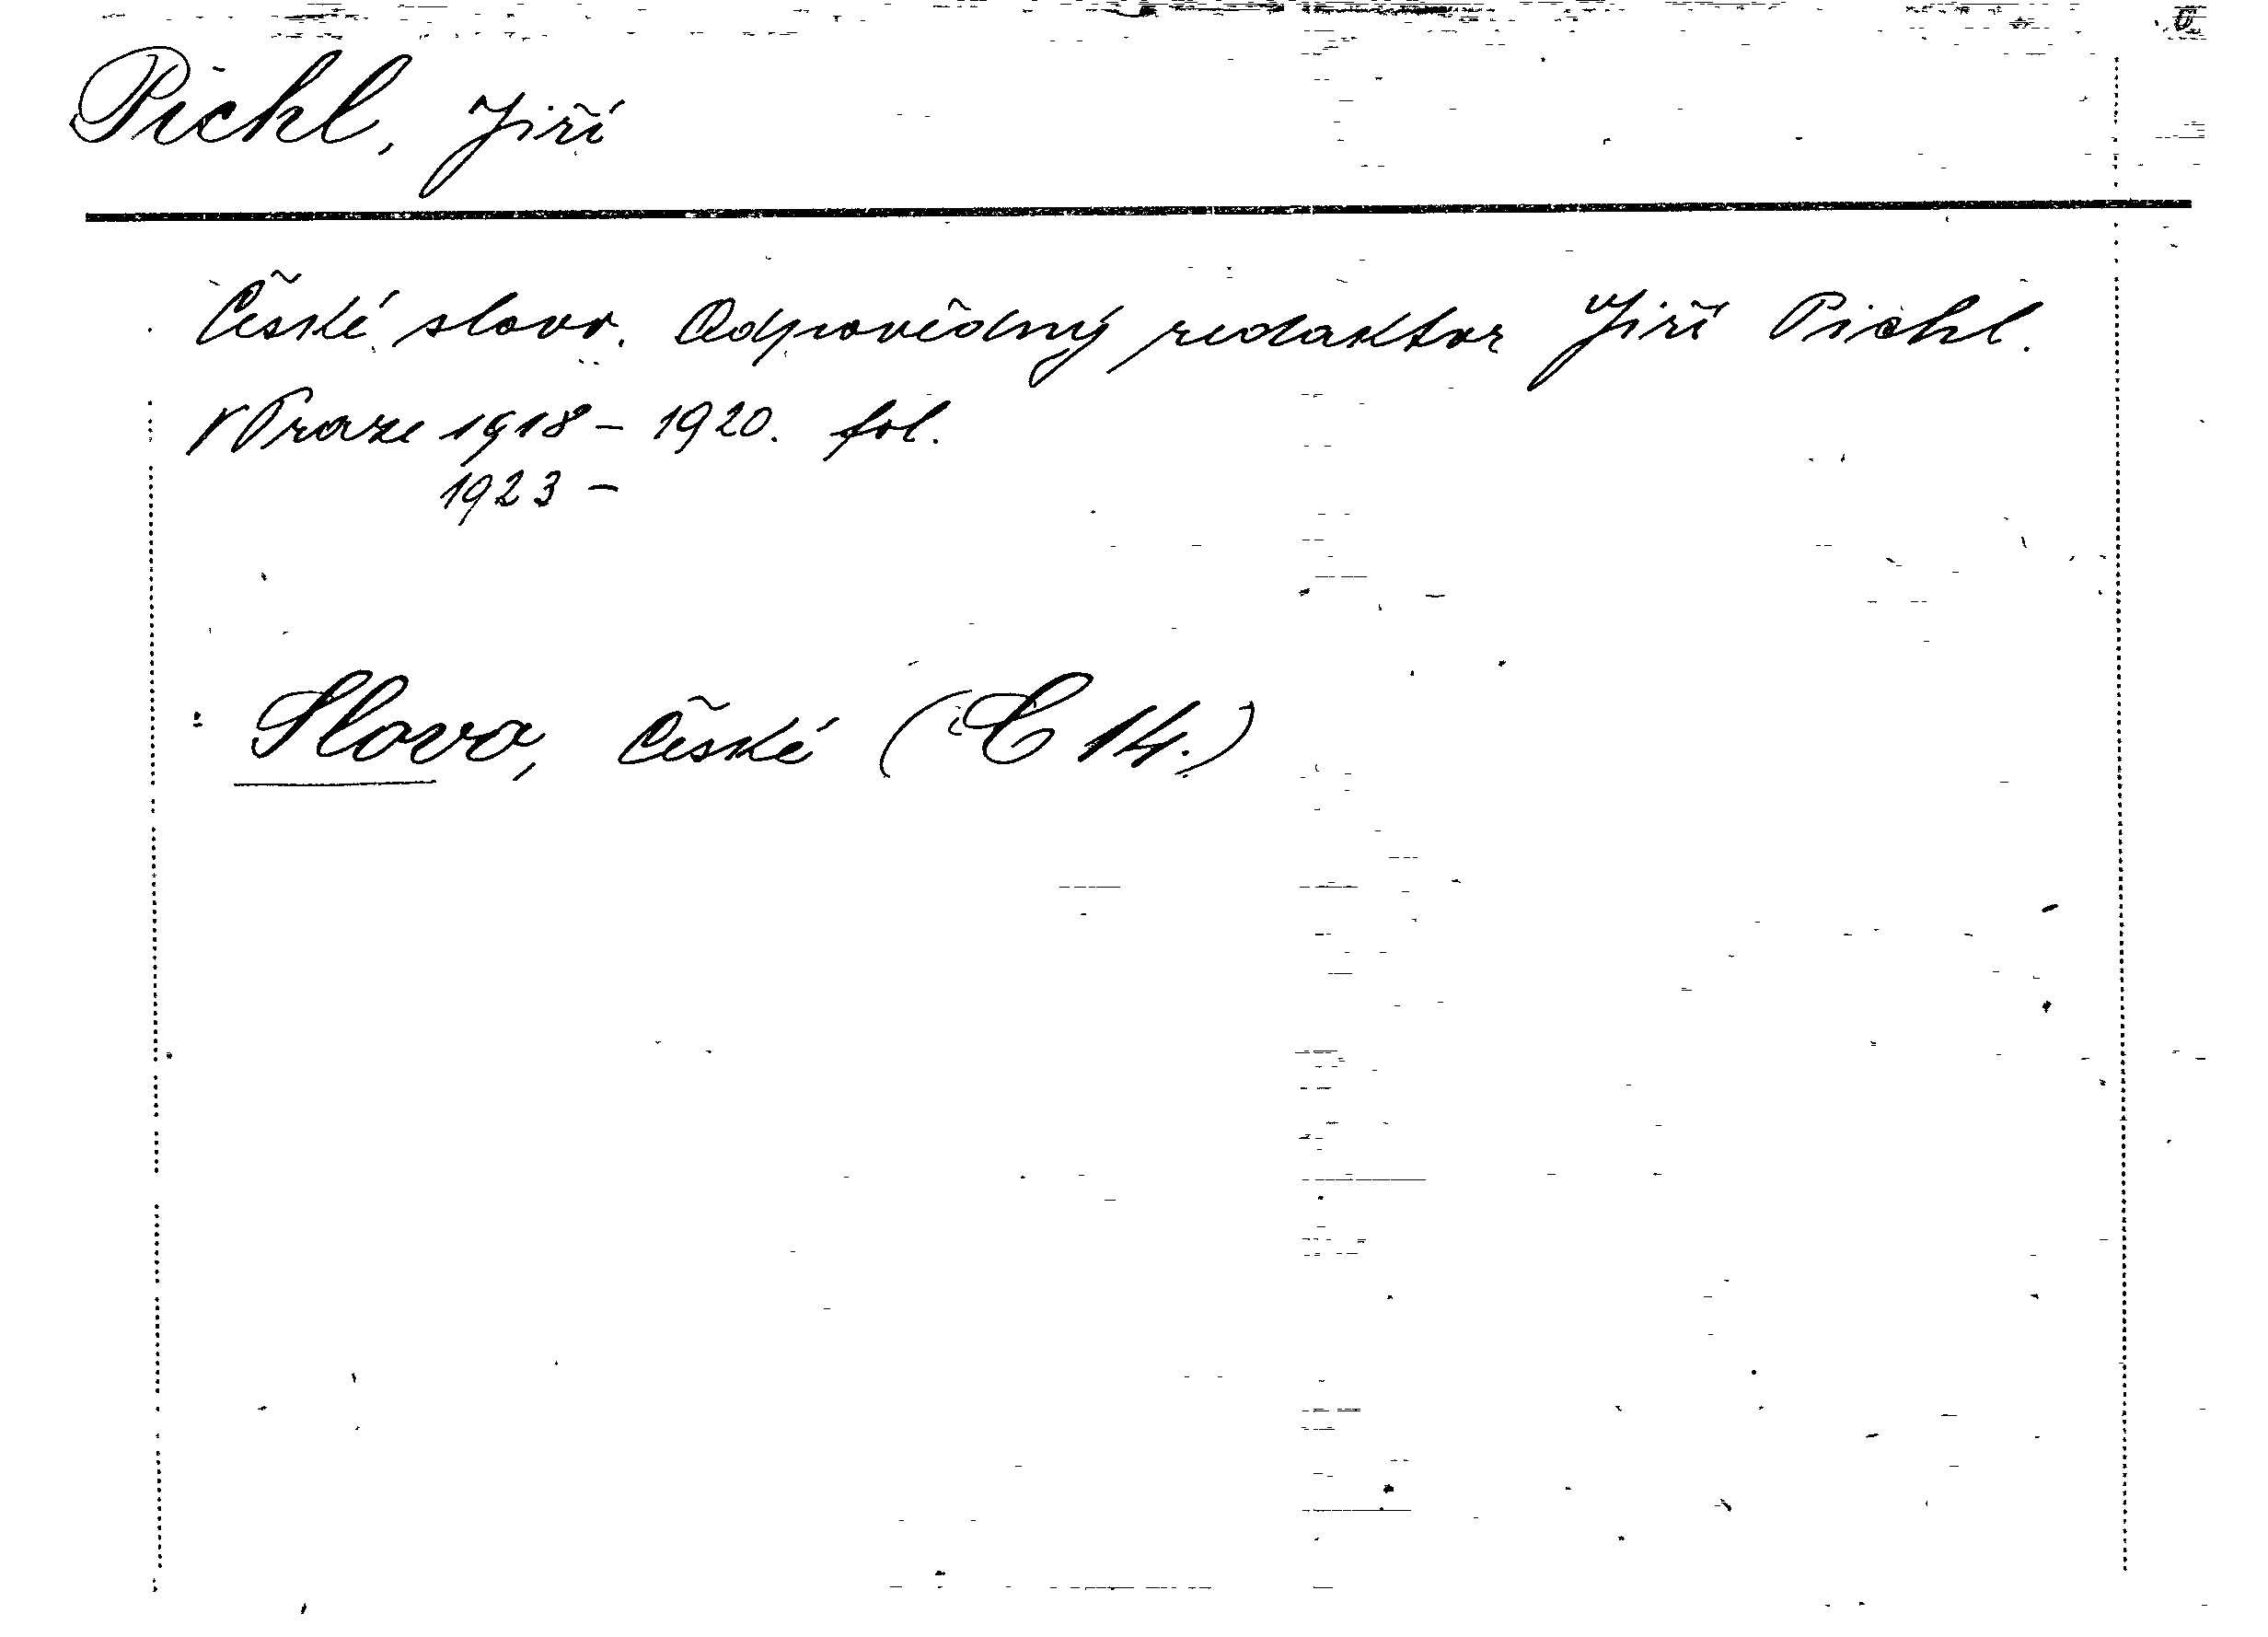 Pichl, Jiří
České slovo. Odpovědný redaktor Jiří Pichl.
V Praze 1918 - 1920. fol.
1923 -
Slovo, České (C 14.)